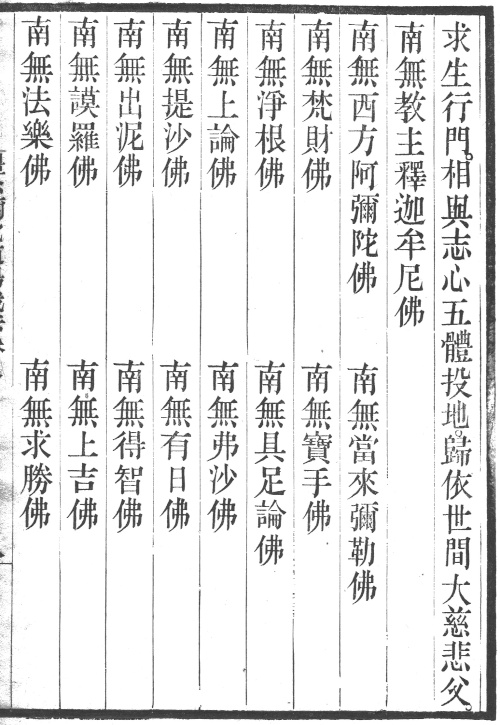 求生行門。相與志心五體投地。歸依世間大慈悲父。
南無教主釋迦牟尼佛
南無西方阿彌陀佛　南無當來彌勒佛
南無梵財佛　南無寶手佛
南無淨根佛　南無具足論佛
南無上論佛　南無弗沙佛
南無提沙佛　南無有日佛
南無出泥佛　南無得智佛
南無謨羅佛　南無上吉佛
南無法樂佛　南無求勝佛